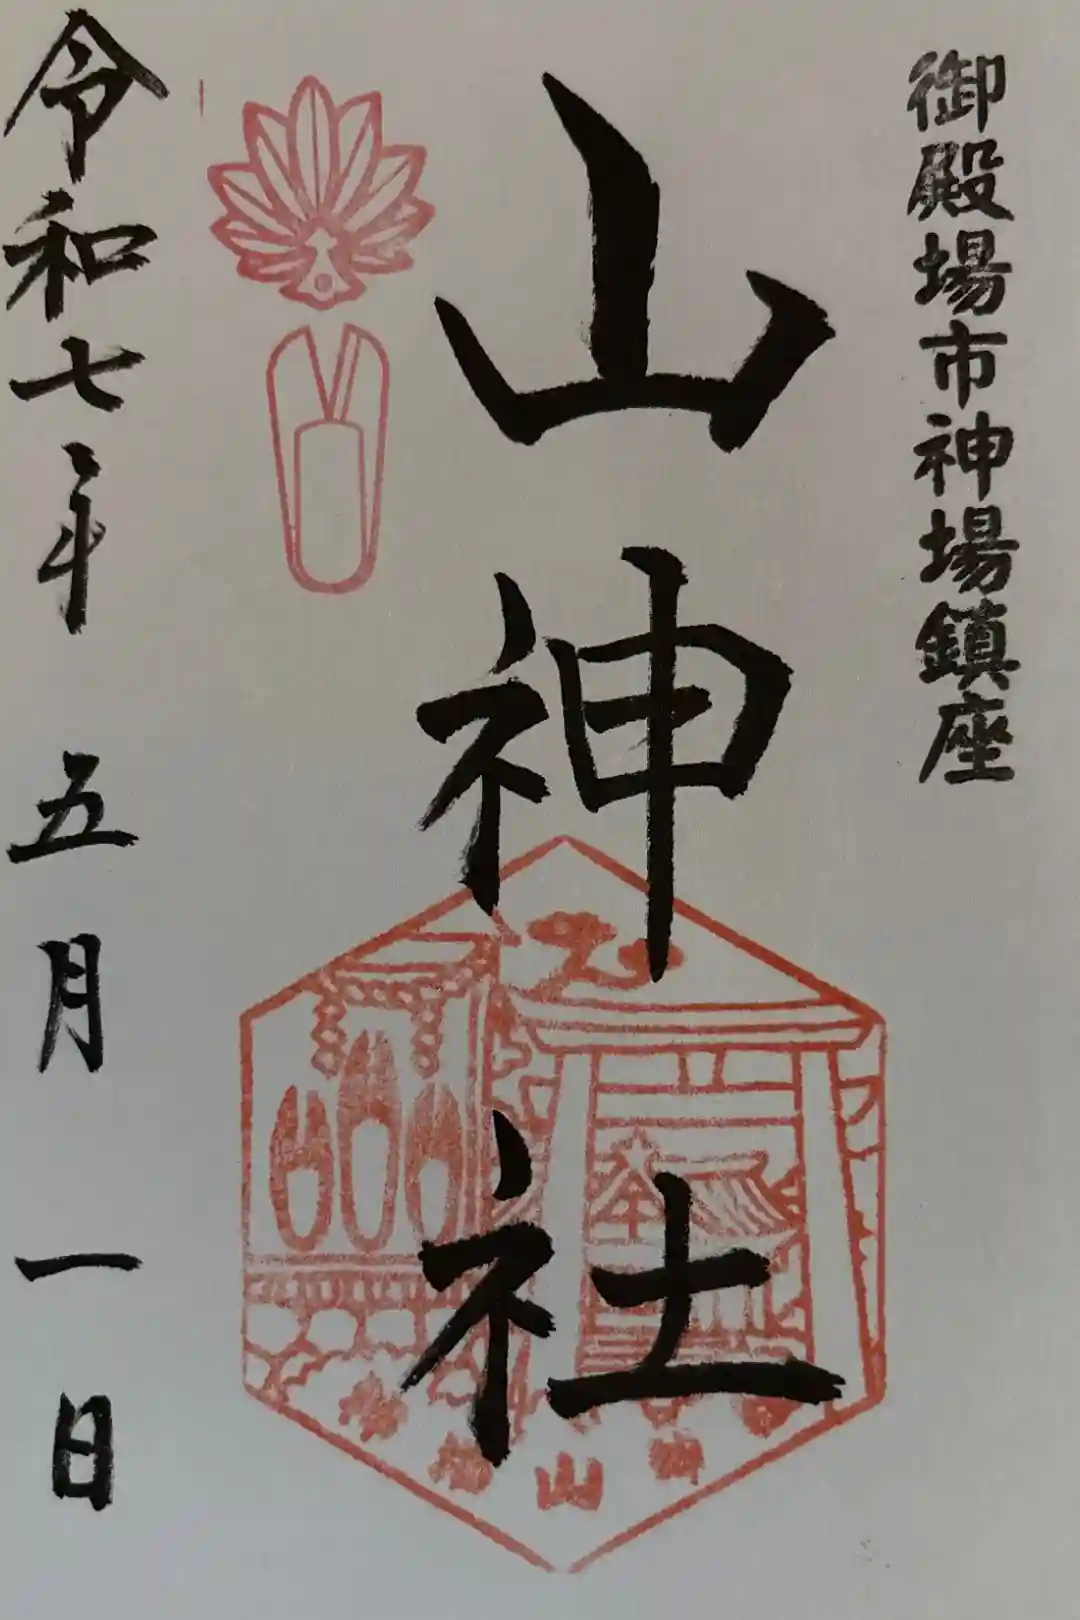 御殿場市神場鎮座
山神社
令和七年 五月 一日